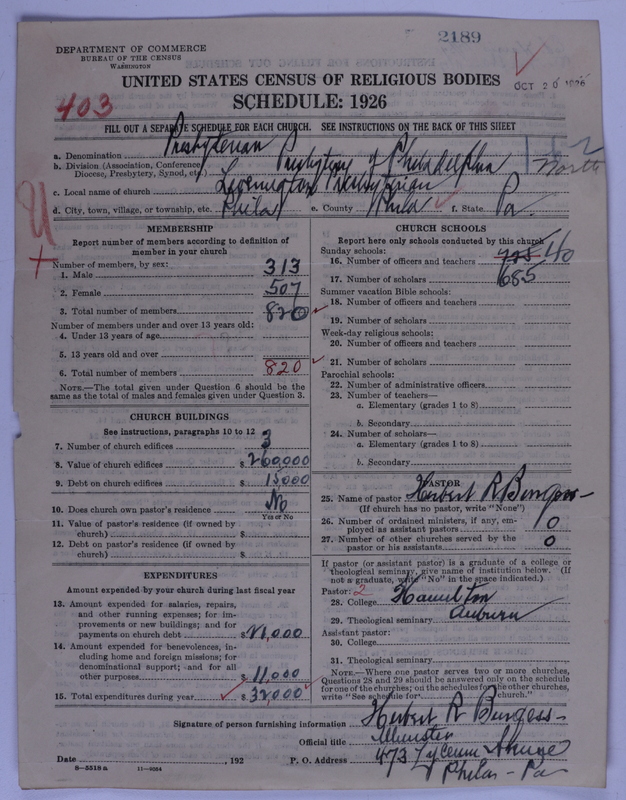 2189
DEPARTMENT OF COMMERCE
BUREAU OF THE CENSUS
WASHINGTON
UNITED STATES CENSUS OF RELIGIOUS BODIES
OCT 26 1926
403
SCHEDULE: 1926
FILL OUT A SEPARATE SCHEDULE FOR EACH CHURCH. SEE INSTRUCTIONS ON THE BACK OF THIS SHEET
a. Denomination Presbyterian
b. Division (Association, Conference, Diocese, Presbytery, Synod, etc.) Presbytery of Philadelphia North
c. Local name of church Presbyterian
d. City, town, village, or township, etc. Phila e. County Phila f. State Pa.
MEMBERSHIP
Report number of members according to definition of
member in your church
Number of members, by sex:
1. Male 313
2. Female 507
3. Total number of members 820
Number of members under and over 13 years old:
4. Under 13 years of age
5. 13 years old and over
6. Total number of members 820
NOTE.—The total given under Question 6 should be
same as the total of males and females given under Question 3.
CHURCH BUILDINGS
See instructions, paragraphs 10 to 12
7. Number of church edifices 3
8. Value of church edifices $ 260,000
9. Debt on church edifices $ 15,000
10. Does church own pastor's residence No
Yes or No
11. Value of pastor's residence (if owned by
church) $
12. Debt on pastor's residence (if owned by
church) $
EXPENDITURES
Amount expended by your church during last fiscal year
13. Amount expended for salaries, repairs,
and other running expenses; for im-
provements or new buildings; and for
payments on church debt $ 21,000
14. Amount expended for benevolences, in-
cluding home and foreign missions; for
denominational support; and for all
other purposes $ 11,000
15. Total expenditures during year $ 32,000
CHURCH SCHOOLS
Report here only schools conducted by this church
Sunday schools:
16. Number of officers and teachers 40
17. Number of scholars 685
Summer vacation Bible schools:
18. Number of officers and teachers
19. Number of scholars
Week-day religious schools:
20. Number of officers and teachers
21. Number of scholars
Parochial schools:
22. Number of administrative officers
23. Number of teachers—
a. Elementary (grades 1 to 8)
b. Secondary
24. Number of scholars—
a. Elementary (grades 1 to 8)
b. Secondary
PASTOR
25. Name of pastor Herbert R Burgess
(If church has no pastor, write "None")
26. Number of ordained ministers, if any, em-
ployed as assistant pastors 0
27. Number of other churches served by the
pastor or his assistants 0
If pastor (or assistant pastor) is a graduate of a college or
theological seminary, give name of institution below. (If
not a graduate, write "No" in the space indicated.)
Pastor: 2
28. College Hamilton
29. Theological seminary Auburn
Assistant pastor:
30. College
31. Theological seminary
NOTE.—Where one pastor serves two or more churches,
Questions 28 and 29 should be answered only on the schedule
for one of the churches; on the schedules for the other churches,
write "See schedule for church."
Signature of person furnishing information Herbert R Burgess
Official title Minister
Date , 192 P. O. Address 473 Lyceum Avenue
Phila - Pa
8—5518 a 11—9064